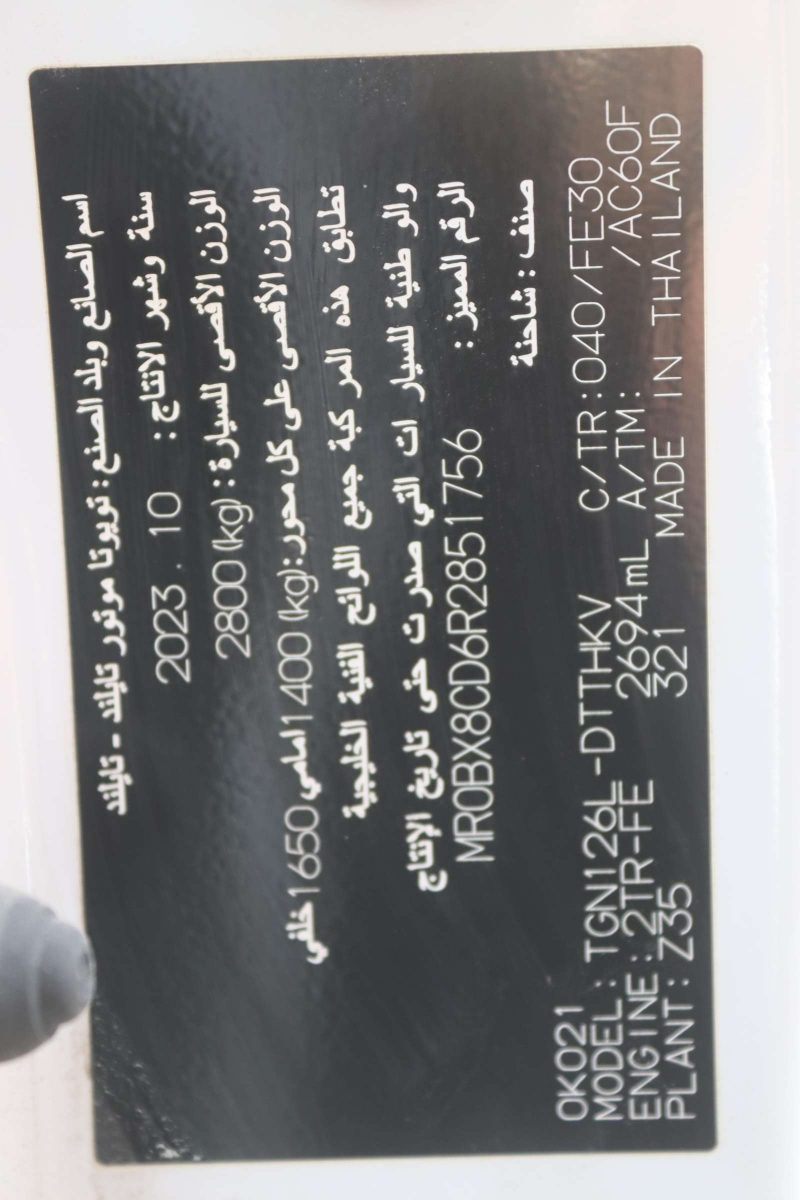 اسم الصانع وبلد الصنع : تويوتا موتور تايلند - تايلند
سنة وشهر الانتاج : 2023 . 10
الوزن الأقصى للسيارة : (kg) 2800
الوزن الأقصى على كل محور : (kg) 1400 امامي 1650 خلفي
تطابق هذه المركبة جميع اللوائح الفنية الخليجية
والوطنية للسيارات التي صدرت حتى تاريخ الإنتاج
الرقم المميز : MR0BX8CD6R2851756
صنف : شاحنة
0K021
MODEL : TGN126L-DTTHKV C/TR:040/FE30
ENGINE : 2TR-FE 2694mL A/TM: /AC60F
PLANT : Z35 321 MADE IN THAILAND